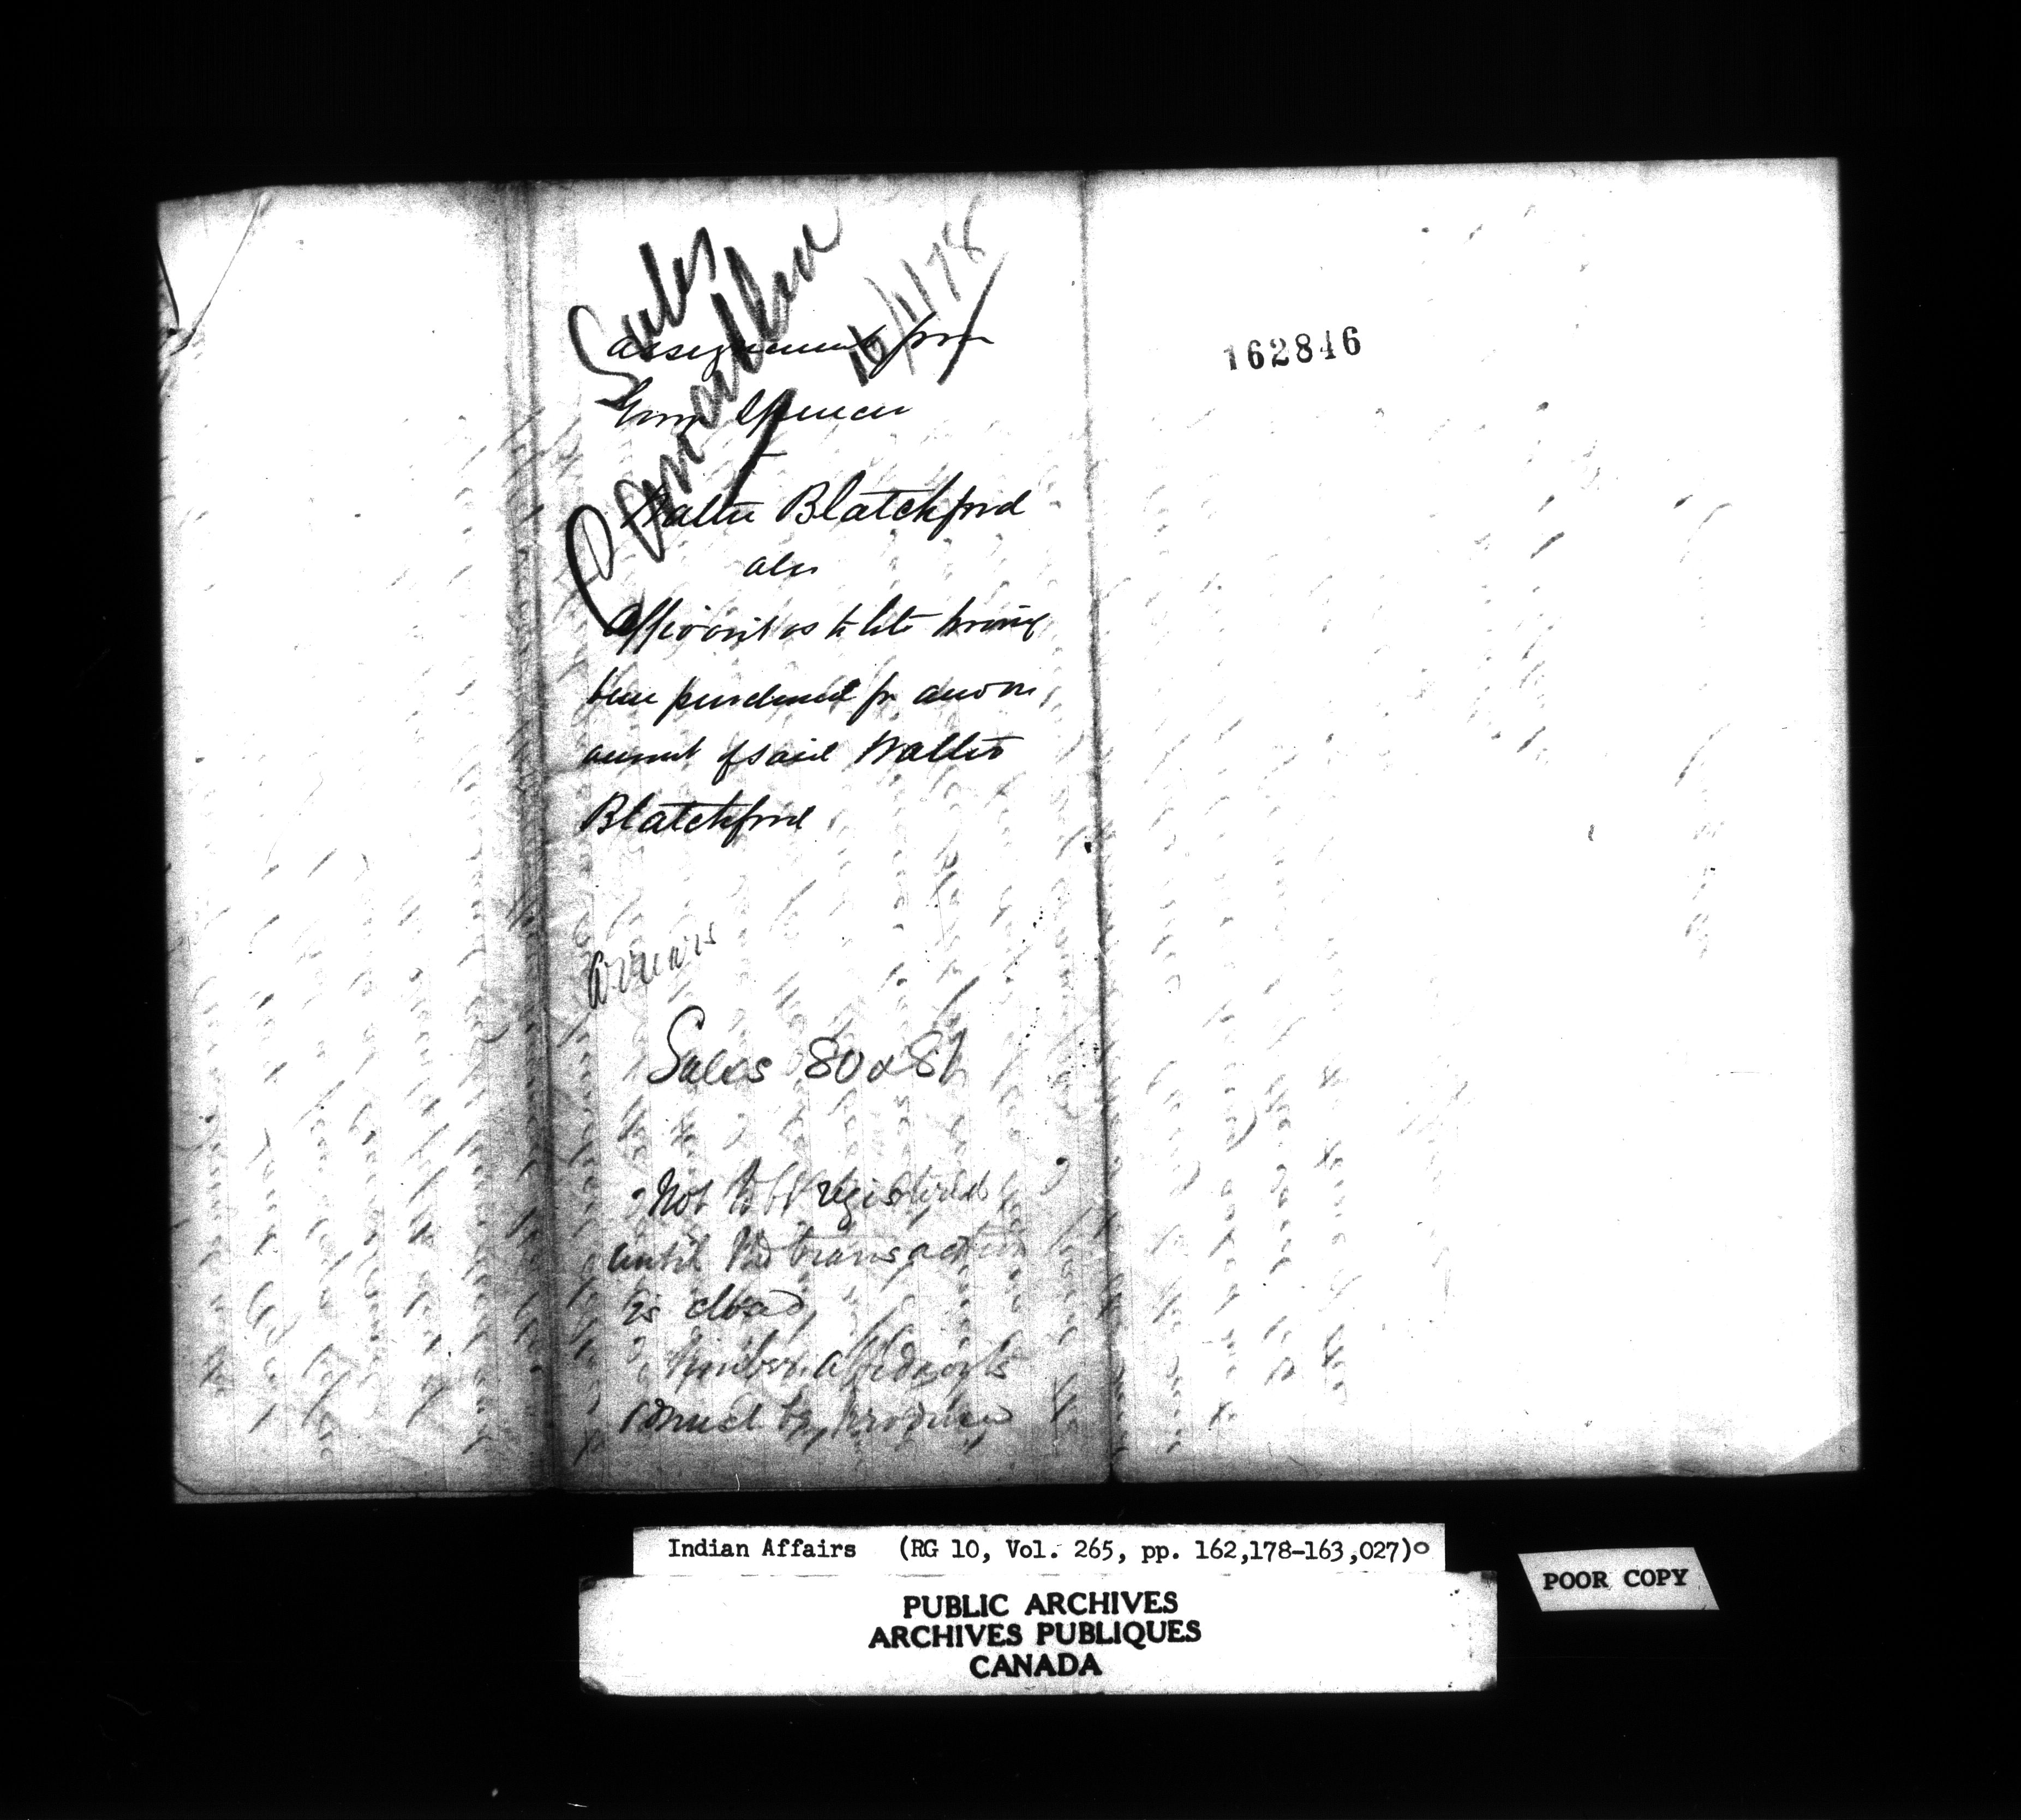 Sales
16/4/78
assignment from
Spencer
to
Walter Blatchford
also
affidavit as to lots having
been purchased for and on
account of said Walter
Blatchford
arrears
Sales 80 & 81
Not to be registered
until the transaction
is closed
affidavits
must be
162846
Indian Affairs (RG 10, Vol. 265, pp. 162,178-163,027)
PUBLIC ARCHIVES
ARCHIVES PUBLIQUES
CANADA
POOR COPY